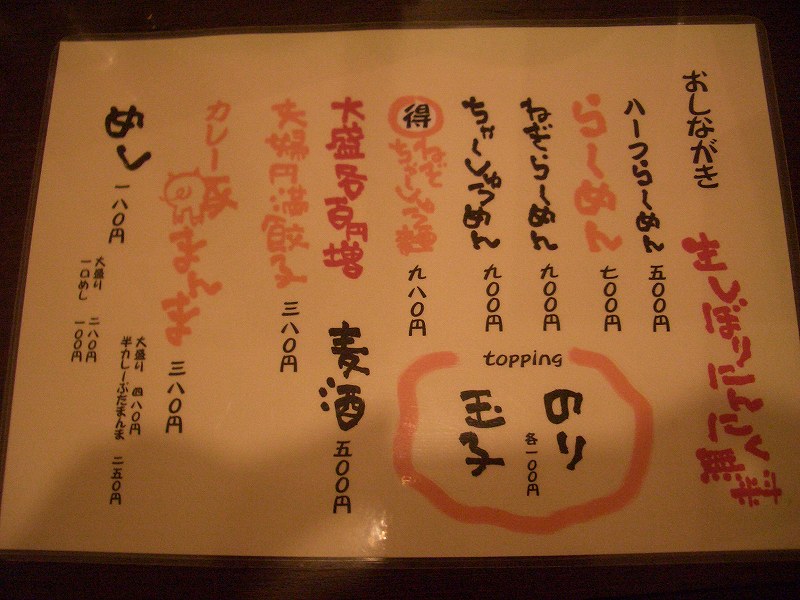 おしながき
生しぼりにんにく無料
ハーフらーめん 五〇〇円
らーめん 七〇〇円
ねぎらーめん 九〇〇円
ちゃーしゅうめん 九〇〇円
得 ねぎちゃーしゅう麺 九八〇円
topping
のり
各一〇〇円
玉子
大盛各百円増
麦酒 五〇〇円
夫婦円満餃子 三八〇円
カレー豚まんま 三八〇円
大盛り 四八〇円
半カレーぶたまんま 二五〇円
めし 一八〇円
大盛り 二八〇円
一口めし 一〇〇円